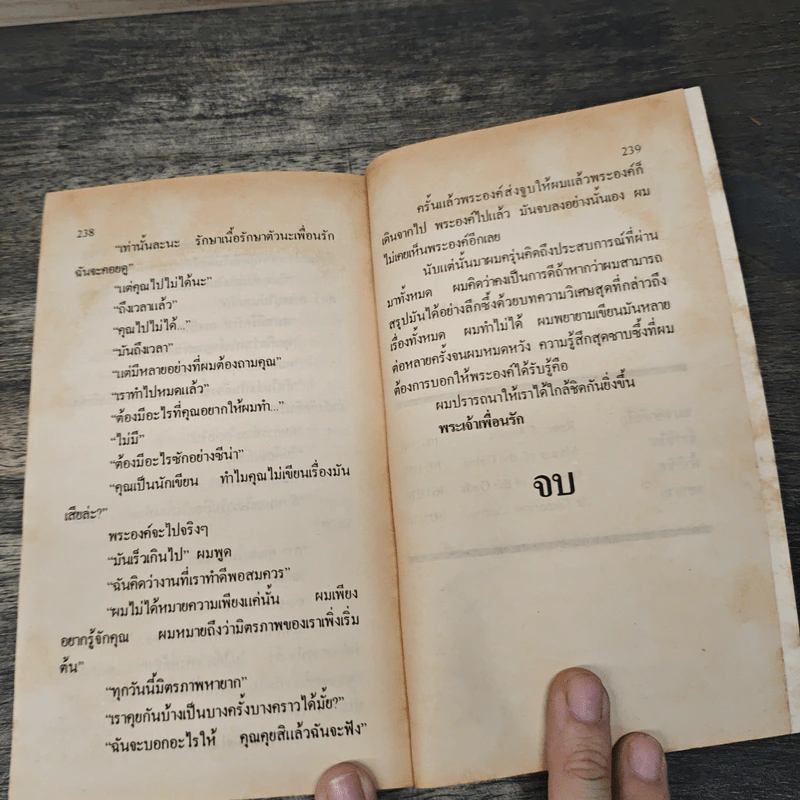 238
“เท่านั้นละนะ รักษาเนื้อรักษาตัวนะเพื่อนรัก
ฉันจะคอยดู”
“แต่คุณไปไม่ได้นะ”
“ถึงเวลาแล้ว”
“คุณไปไม่ได้...”
“มันถึงเวลา”
“แต่มีหลายอย่างที่ผมต้องถามคุณ”
“เราทำไปหมดแล้ว”
“ต้องมีอะไรที่คุณอยากให้ผมทำ...”
“ไม่มี”
“ต้องมีอะไรซักอย่างซีน่า”
“คุณเป็นนักเขียน ทำไมคุณไม่เขียนเรื่องมัน
เสียล่ะ?”
พระองค์จะไปจริงๆ
“มันเร็วเกินไป” ผมพูด
“ฉันคิดว่างานที่เราทำดีพอสมควร”
“ผมไม่ได้หมายความเพียงแค่นั้น ผมเพียง
อยากรู้จักคุณ ผมหมายถึงว่ามิตรภาพของเราเพิ่งเริ่ม
ต้น”
“ทุกวันนี้มิตรภาพหายาก”
“เราคุยกันบ้างเป็นบางครั้งบางคราวได้มั้ย?”
“ฉันจะบอกอะไรให้ คุณคุยสิแล้วฉันจะฟัง”
239
ครั้นแล้วพระองค์ส่งฐูบให้ผมแล้วพระองค์ก็
เดินจากไป พระองค์ไปแล้ว มันจบลงอย่างนั้นเอง ผม
ไม่เคยเห็นพระองค์อีกเลย
นับแต่นั้นมาผมครุ่นคิดถึงประสบการณ์ที่ผ่าน
มาทั้งหมด ผมคิดว่าคงเป็นการดีถ้าหากว่าผมสามารถ
สรุปมันได้อย่างลึกซึ้งด้วยบทความวิเศษสุดที่กล่าวถึง
เรื่องทั้งหมด ผมทำไม่ได้ ผมพยายามเขียนมันหลาย
ต่อหลายครั้งจนผมหมดหวัง ความรู้สึกสุดซาบซึ้งที่ผม
ต้องการบอกให้พระองค์ได้รับรู้คือ
ผมปรารถนาให้เราได้ใกล้ชิดกันยิ่งขึ้น
พระเจ้าเพื่อนรัก
จบ